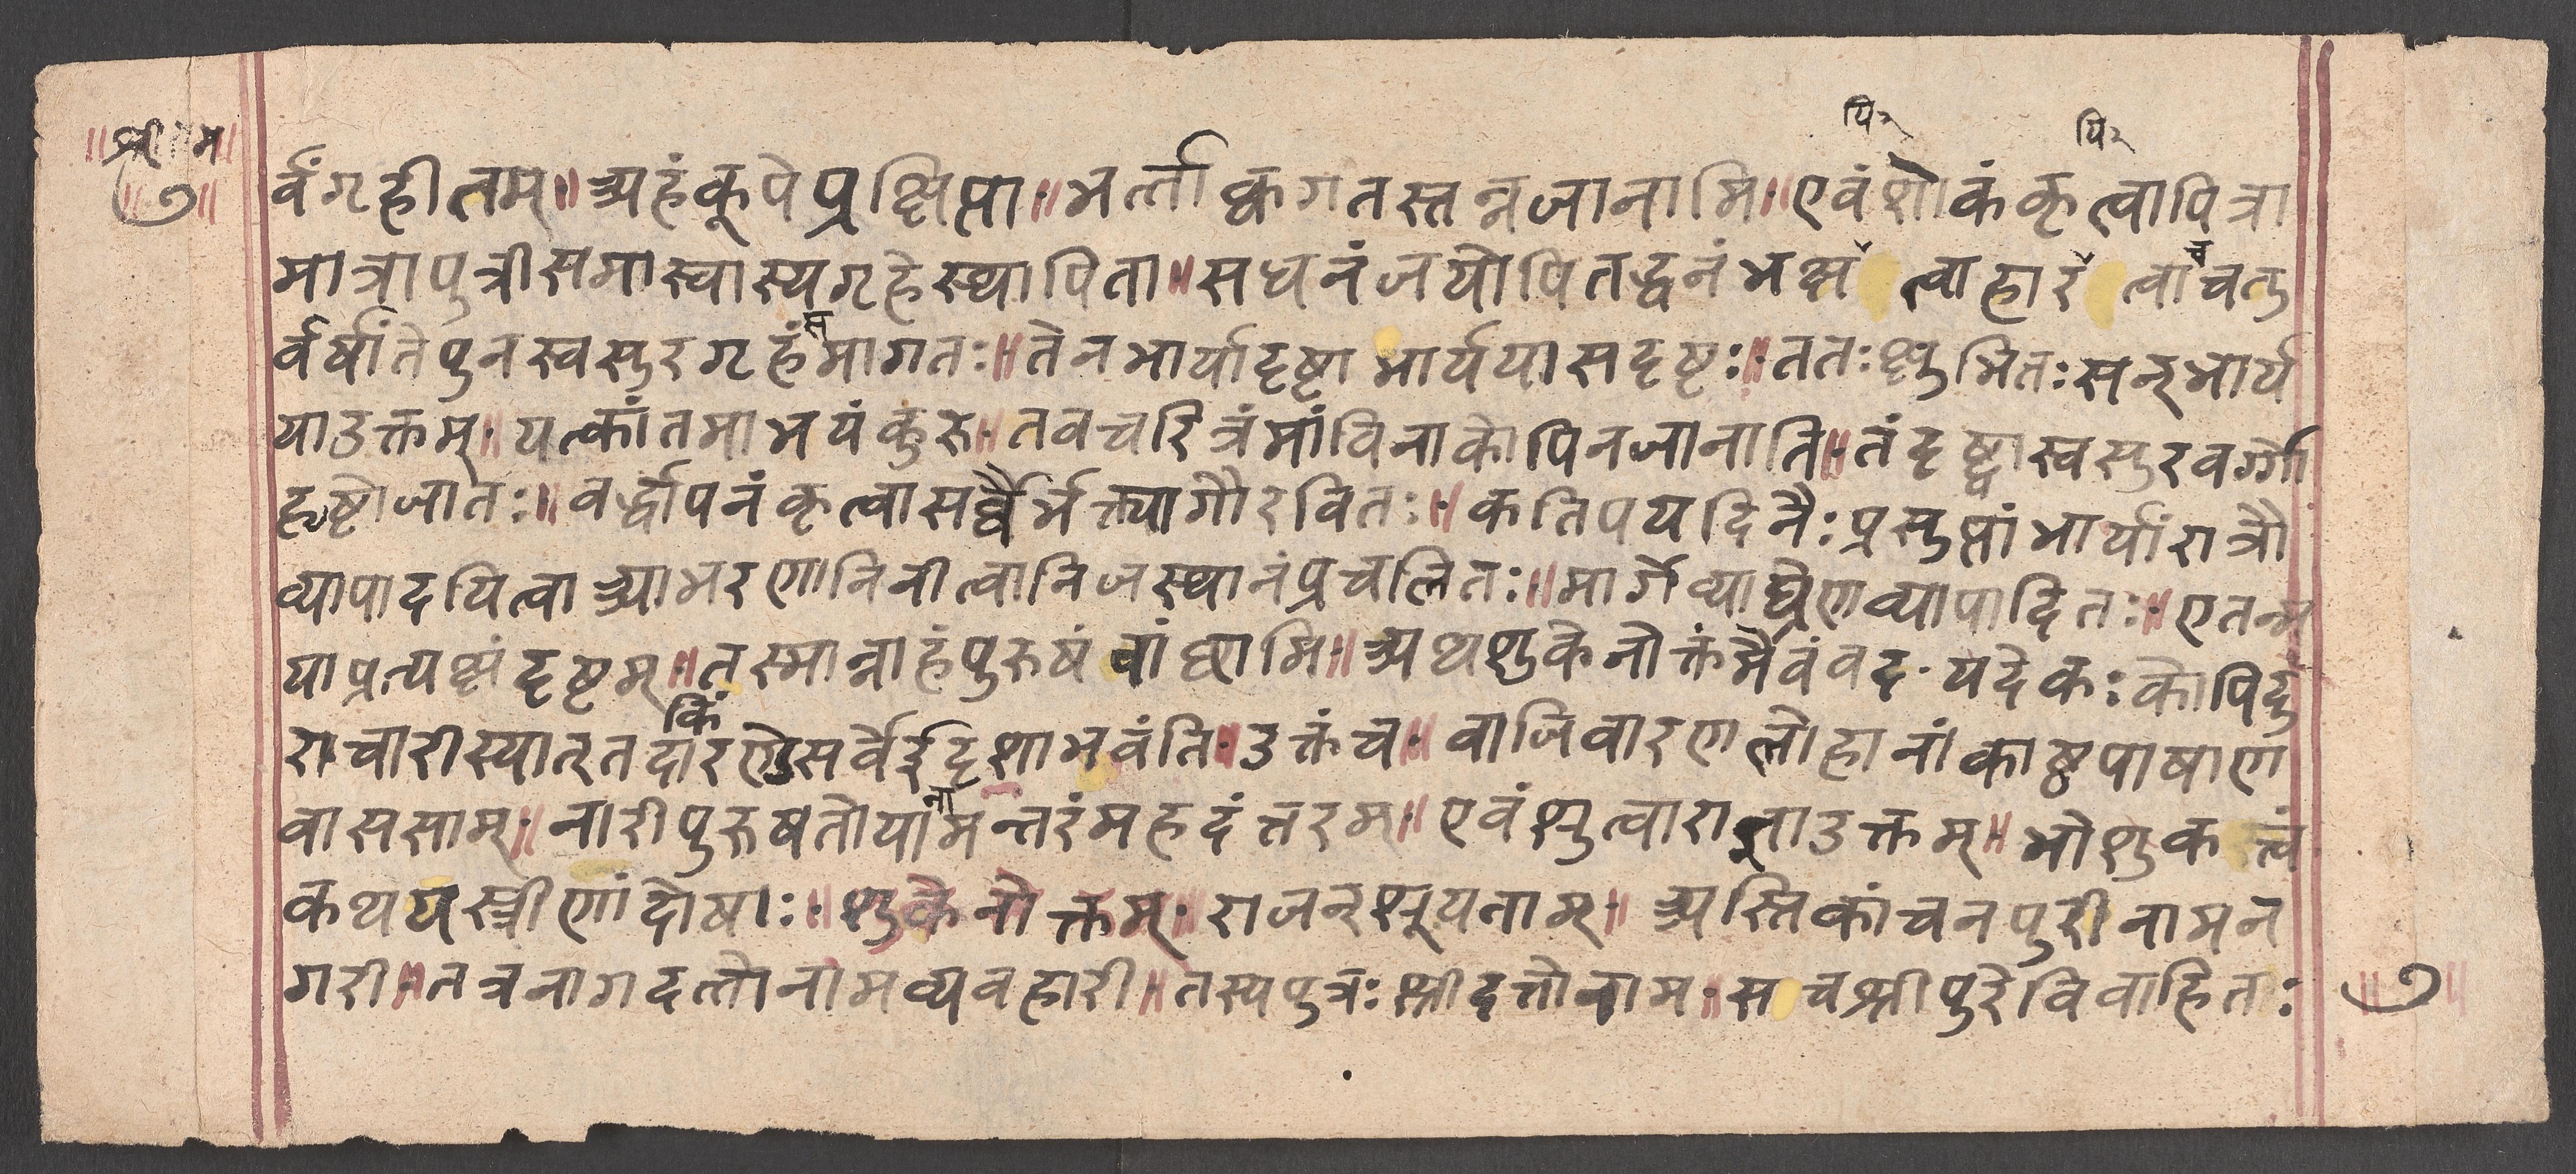 यि २ यि २
॥श्री म॥
॥७॥
र्वं गृहीतम्॥ अहं कूपे प्रक्षिप्ता॥ भर्त्ता क्व गतस्तन्न जानामि॥ एवं शोकं कृत्वा पित्रा
मात्रा पुत्री समास्वास्य गृहे स्थापिता॥ स धनंजयोपि तद्धनं भक्ष त्वा हार त्वा च चतु
र्वर्षांते पुन स्वसुरगृहं समागतः॥ तेन भार्या दृष्टा भार्यया स दृष्टः॥ ततः क्षुभितः सन् भार्य
या उक्तम्॥ यत्कांत मा भयं कुरु॥ तव चरित्रं मां विना कोपि न जानाति॥ तं दृष्ट्वा स्वसुरवर्ग्गो
हृष्टो जातः॥ वर्द्धापनं कृत्वा सर्व्वैर्भक्त्या गौरवितः॥ कतिपयदिनैः प्रसुप्तां भार्यां रात्रौ
व्यापादयित्वा आभरणानि नीत्वा निजस्थानं प्रचलितः॥ मार्गे व्याघ्रेण व्यापादितः॥ एतन्म
या प्रत्यक्षं दृष्टम्॥ तस्मान्नाहं पुरुषं वांछामि॥ अथ शुकेनोक्तं मैवं वद· यदेकः कोपि दु
राचारी स्यात् तदा किं रणे सर्वे ईदृशा भवंति॥ उक्तं च॥ वाजिवारणलोहानां काष्ठपाषाण
वाससाम्॥ नारीपुरुषतोयानामन्तरं महदंत्तरम्॥ एवं श्रुत्वा राज्ञा उक्तम्॥ भो शुक त्वं
कथय स्त्रीणां दोषाः॥ शुकेनोक्तम्॥ राजन् श्रूयताम्॥ अस्ति कांचनपुरी नाम न
गरी॥ तत्र नागदत्तो नाम व्यवहारी॥ तस्य पुत्रः श्रीदत्तो नाम॥ स च श्रीपुरे विवाहितः
॥७॥